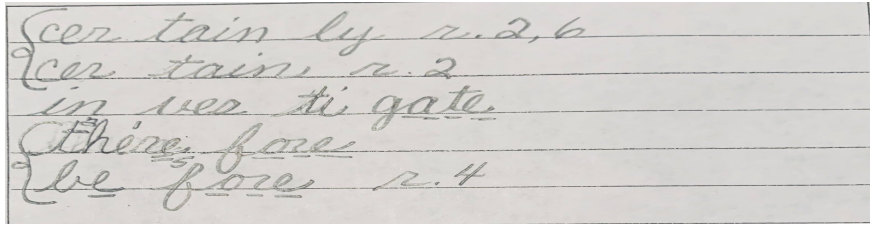 cer tain ly r. 2, 6
cer tain r. 2
in ves ti gate
there fore
be fore r. 4